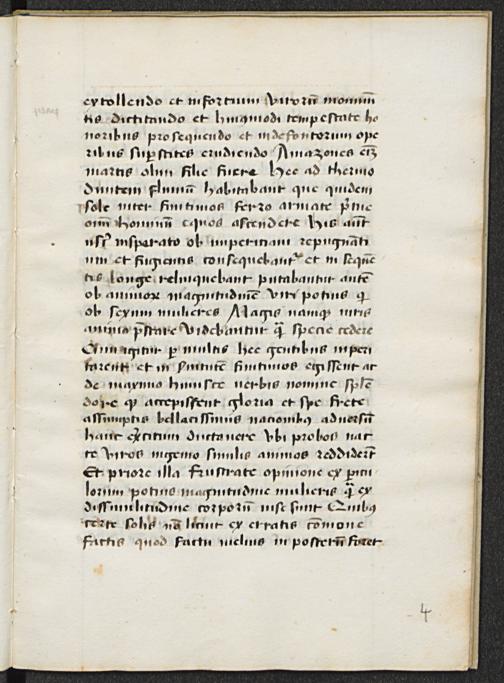 extollendo et infortunium virorū monimē
tis dictitando et huiusmodi tempestate ho
noribus prosequendo et indefontorum ope
ribus suꝑstites erudiendo Amazones eīz
martis olim filie fuere hec ad thermo
duntem fluuiū habitabant que quidem
sole inter finitimos ferro armate p̄ter
om̄ hominū equos ascendere his aūt
inspirato ob imperitiam repugnāti
um et fugientis consequebantur et in seque
tes longe relinquebant putabantur autē
ob animoꝝ magnitudinē viri potius q̄
ob sexum mulieres Magis namqꝫ viris
anima p̄stare videbantur q̄ specie cedere
Cum igitur p multis hec gentibus imperi
tarent et in finitimos egissent at
de maximo huiusce verbis nomine splē
dore qꝫ accepissent gloria et spe frete
assumptis bellacissimis nacionibꝫ aduersū
hanc exercitum ductauere Vbi probos nac
te viros ingenio similis animos reddiderūt
Et priore illa frustrate opinione ex pericu
lorum potius magnitudine mulieris q̄ ex
dissimilitudine corporū vise sunt Quibus
certe solis nō licuit ex erratis cōmone
factis quod factu melius in posterū foret
4